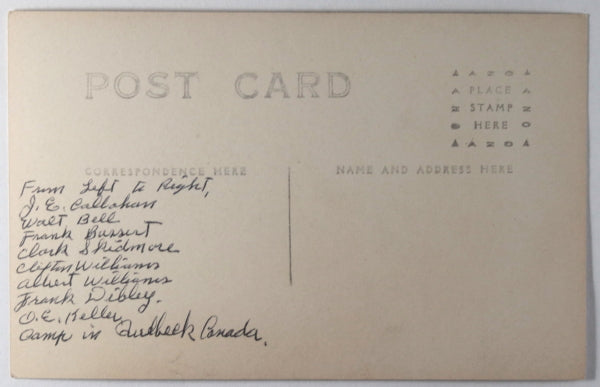 POST CARD
AZO
PLACE
STAMP
HERE
AZO
CORRESPONDENCE HERE
NAME AND ADDRESS HERE
From Left to Right,
J. E. Callahan
Walt Bell
Frank Bussert
Clark Skidmore
Clifton Williams
Albert Williams
Frank Dibley.
O. E. Keller
Camp in Quebeck Canada.